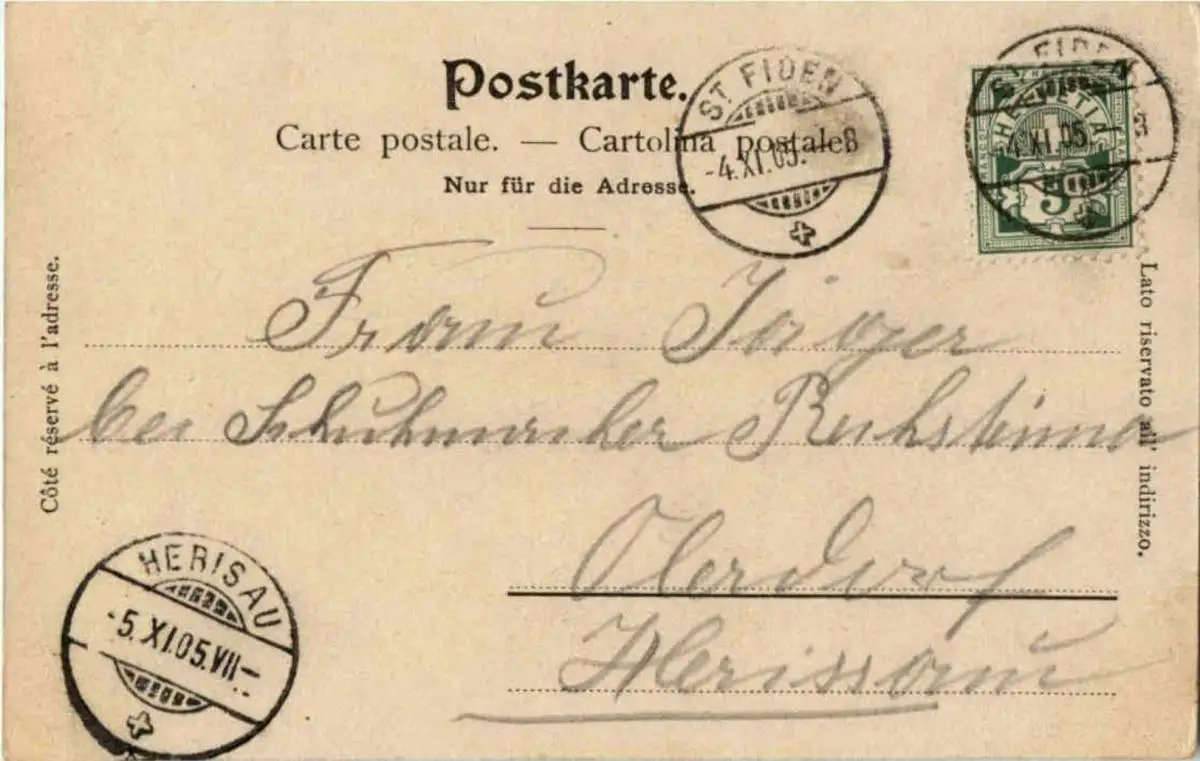 Postkarte.
Carte postale. — Cartolina postale
Nur für die Adresse.
ST FIDEN
-4.XI.05.-8
ST. FIDEN
-4.XI.05.
HELVETIA
5
Côté réservé à l'adresse.
Lato riservato all' indirizzo.
Frau Jäger
bei Schuhmacher
Oberdorf
Herissau
HERISAU
-5.XI.05.VII-